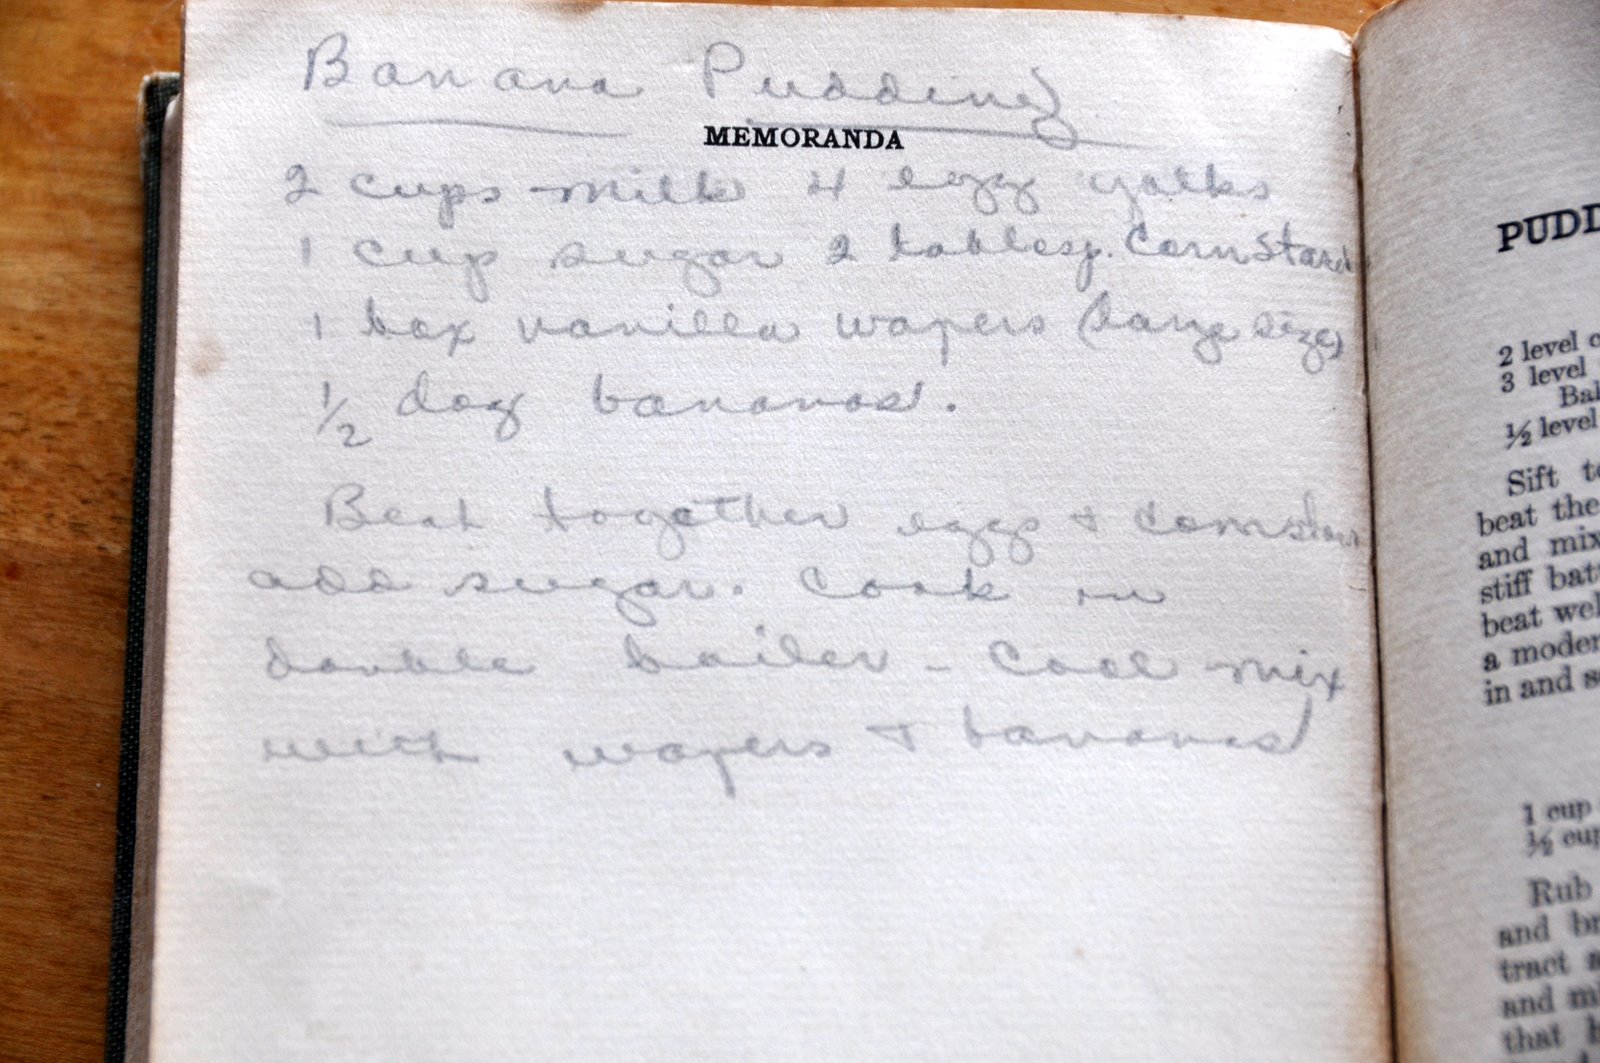 Banana Pudding
MEMORANDA
2 cups milk 4 egg yolks
1 cup sugar 2 tablesp. Cornstarch
1 box vanilla wafers (large size)
1/2 doz bananas.
Beat together eggs & cornstarch
add sugar. Cook in
double boiler - Cool mix
with wafers & bananas
PUDD
2 level c
3 level
Bak
½ level
Sift to
beat the
and mix
stiff batt
beat wel
a moder
in and s
1 cup
½ cup
Rub
and br
tract a
and mi
that b